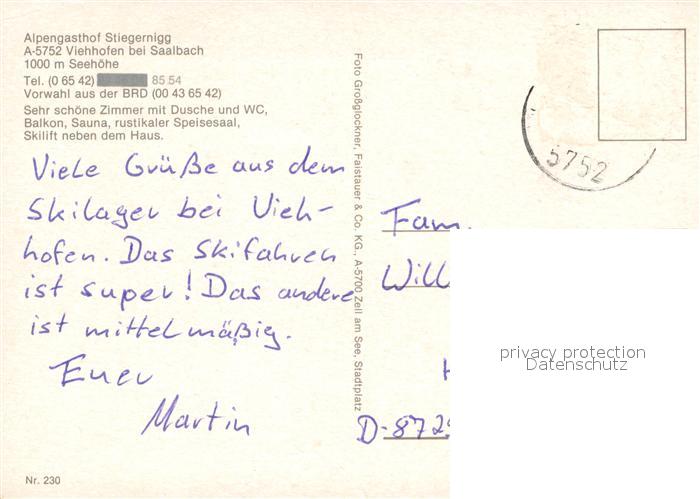 Alpengasthof Stiegernigg
A-5752 Viehhofen bei Saalbach
1000 m Seehöhe
Tel. (0 65 42) 85 54
Vorwahl aus der BRD (00 43 65 42)
Sehr schöne Zimmer mit Dusche und WC,
Balkon, Sauna, rustikaler Speisesaal,
Skilift neben dem Haus.
Viele Grüße aus dem
Skilager bei Vieh-
hofen. Das Skifahren
ist super! Das andere
ist mittelmäßig.
Euer
Martin
Nr. 230
Foto Großglockner, Faistauer & Co. KG., A-5700 Zell am See, Stadtplatz
5752
Fam.
Will
H
D-872
privacy protection
Datenschutz